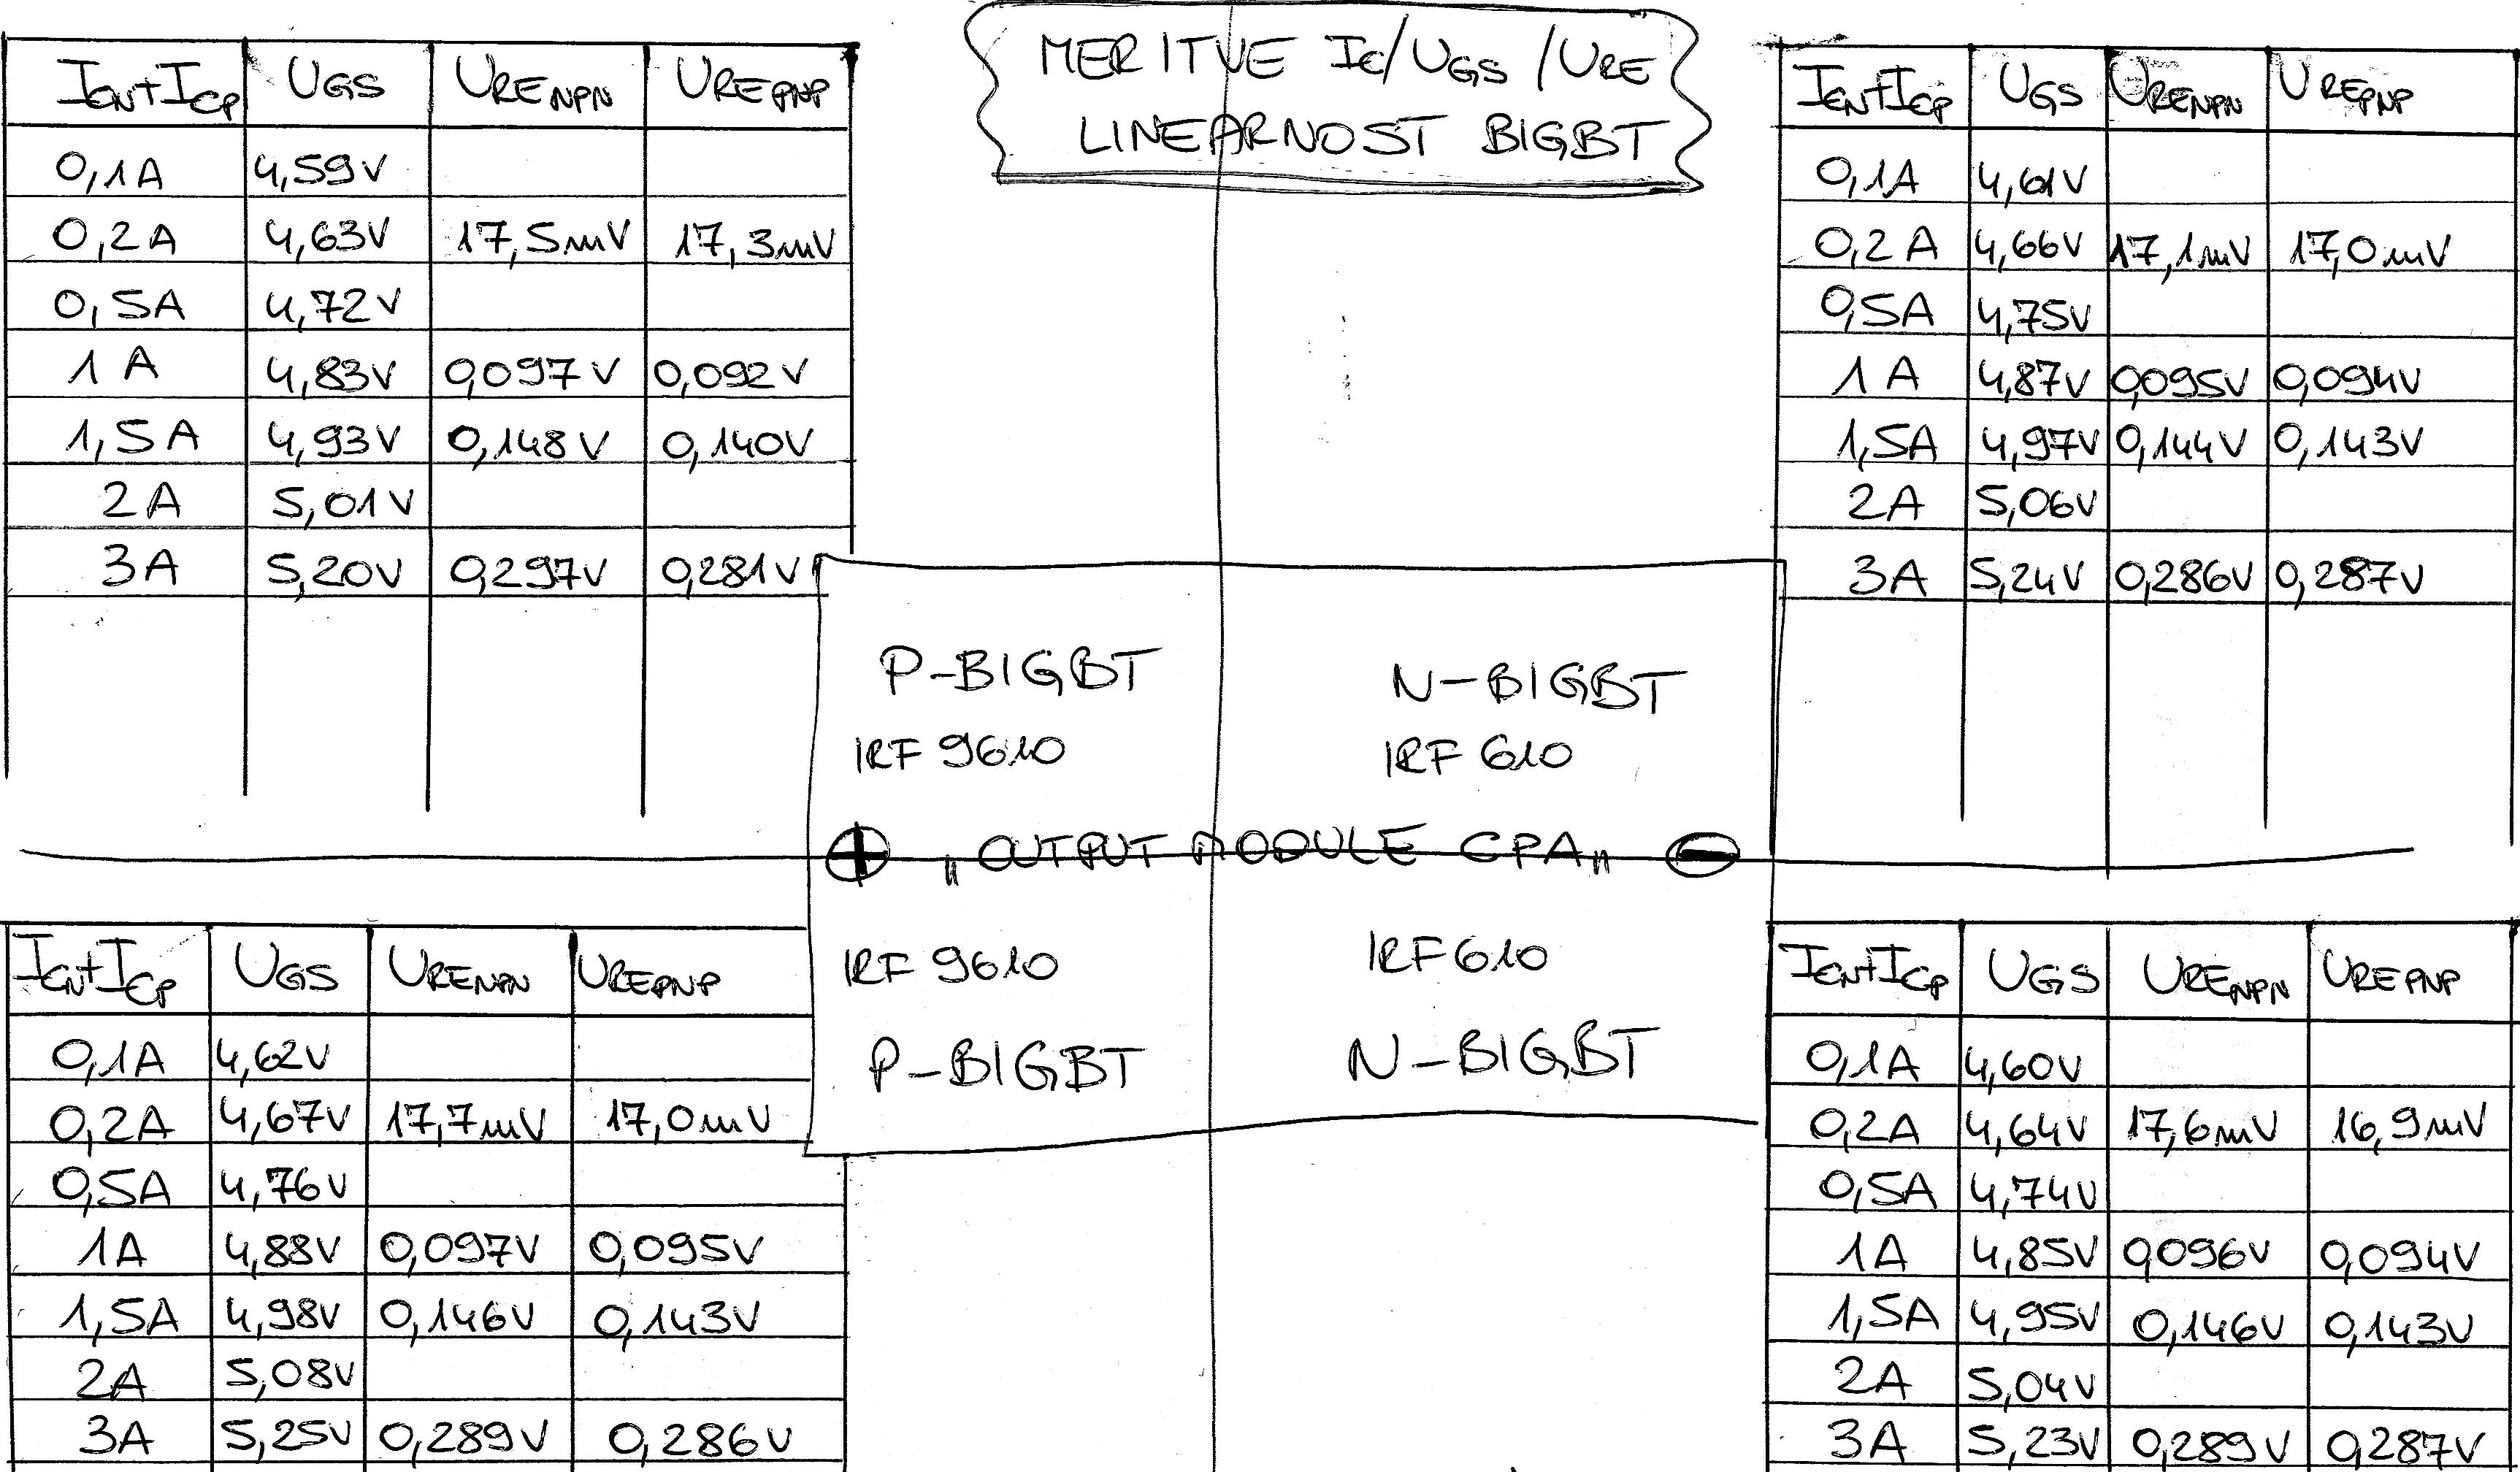 MERITVE IC/UGS/URE
LINEARNOST BIGBT
ICN+ICP UGS URENPN UREPNP
0,1A 4,59V
0,2A 4,63V 17,5mV 17,3mV
0,5A 4,72V
1A 4,83V 0,097V 0,092V
1,5A 4,93V 0,148V 0,140V
2A 5,01V
3A 5,20V 0,297V 0,281V
ICN+ICP UGS URENPN UREPNP
0,1A 4,61V
0,2A 4,66V 17,1mV 17,0mV
0,5A 4,75V
1A 4,87V 0,095V 0,094V
1,5A 4,97V 0,144V 0,143V
2A 5,06V
3A 5,24V 0,286V 0,287V
P-BIGBT N-BIGBT
IRF 9610 IRF 610
+ „OUTPUT MODULE CPA" -
IRF 9610 IRF 610
P-BIGBT N-BIGBT
ICN+ICP UGS URENPN UREPNP
0,1A 4,62V
0,2A 4,67V 17,7mV 17,0mV
0,5A 4,76V
1A 4,88V 0,097V 0,095V
1,5A 4,98V 0,146V 0,143V
2A 5,08V
3A 5,25V 0,289V 0,286V
ICN+ICP UGS URENPN UREPNP
0,1A 4,60V
0,2A 4,64V 17,6mV 16,9mV
0,5A 4,74V
1A 4,85V 0,096V 0,094V
1,5A 4,95V 0,146V 0,143V
2A 5,04V
3A 5,23V 0,289V 0,287V